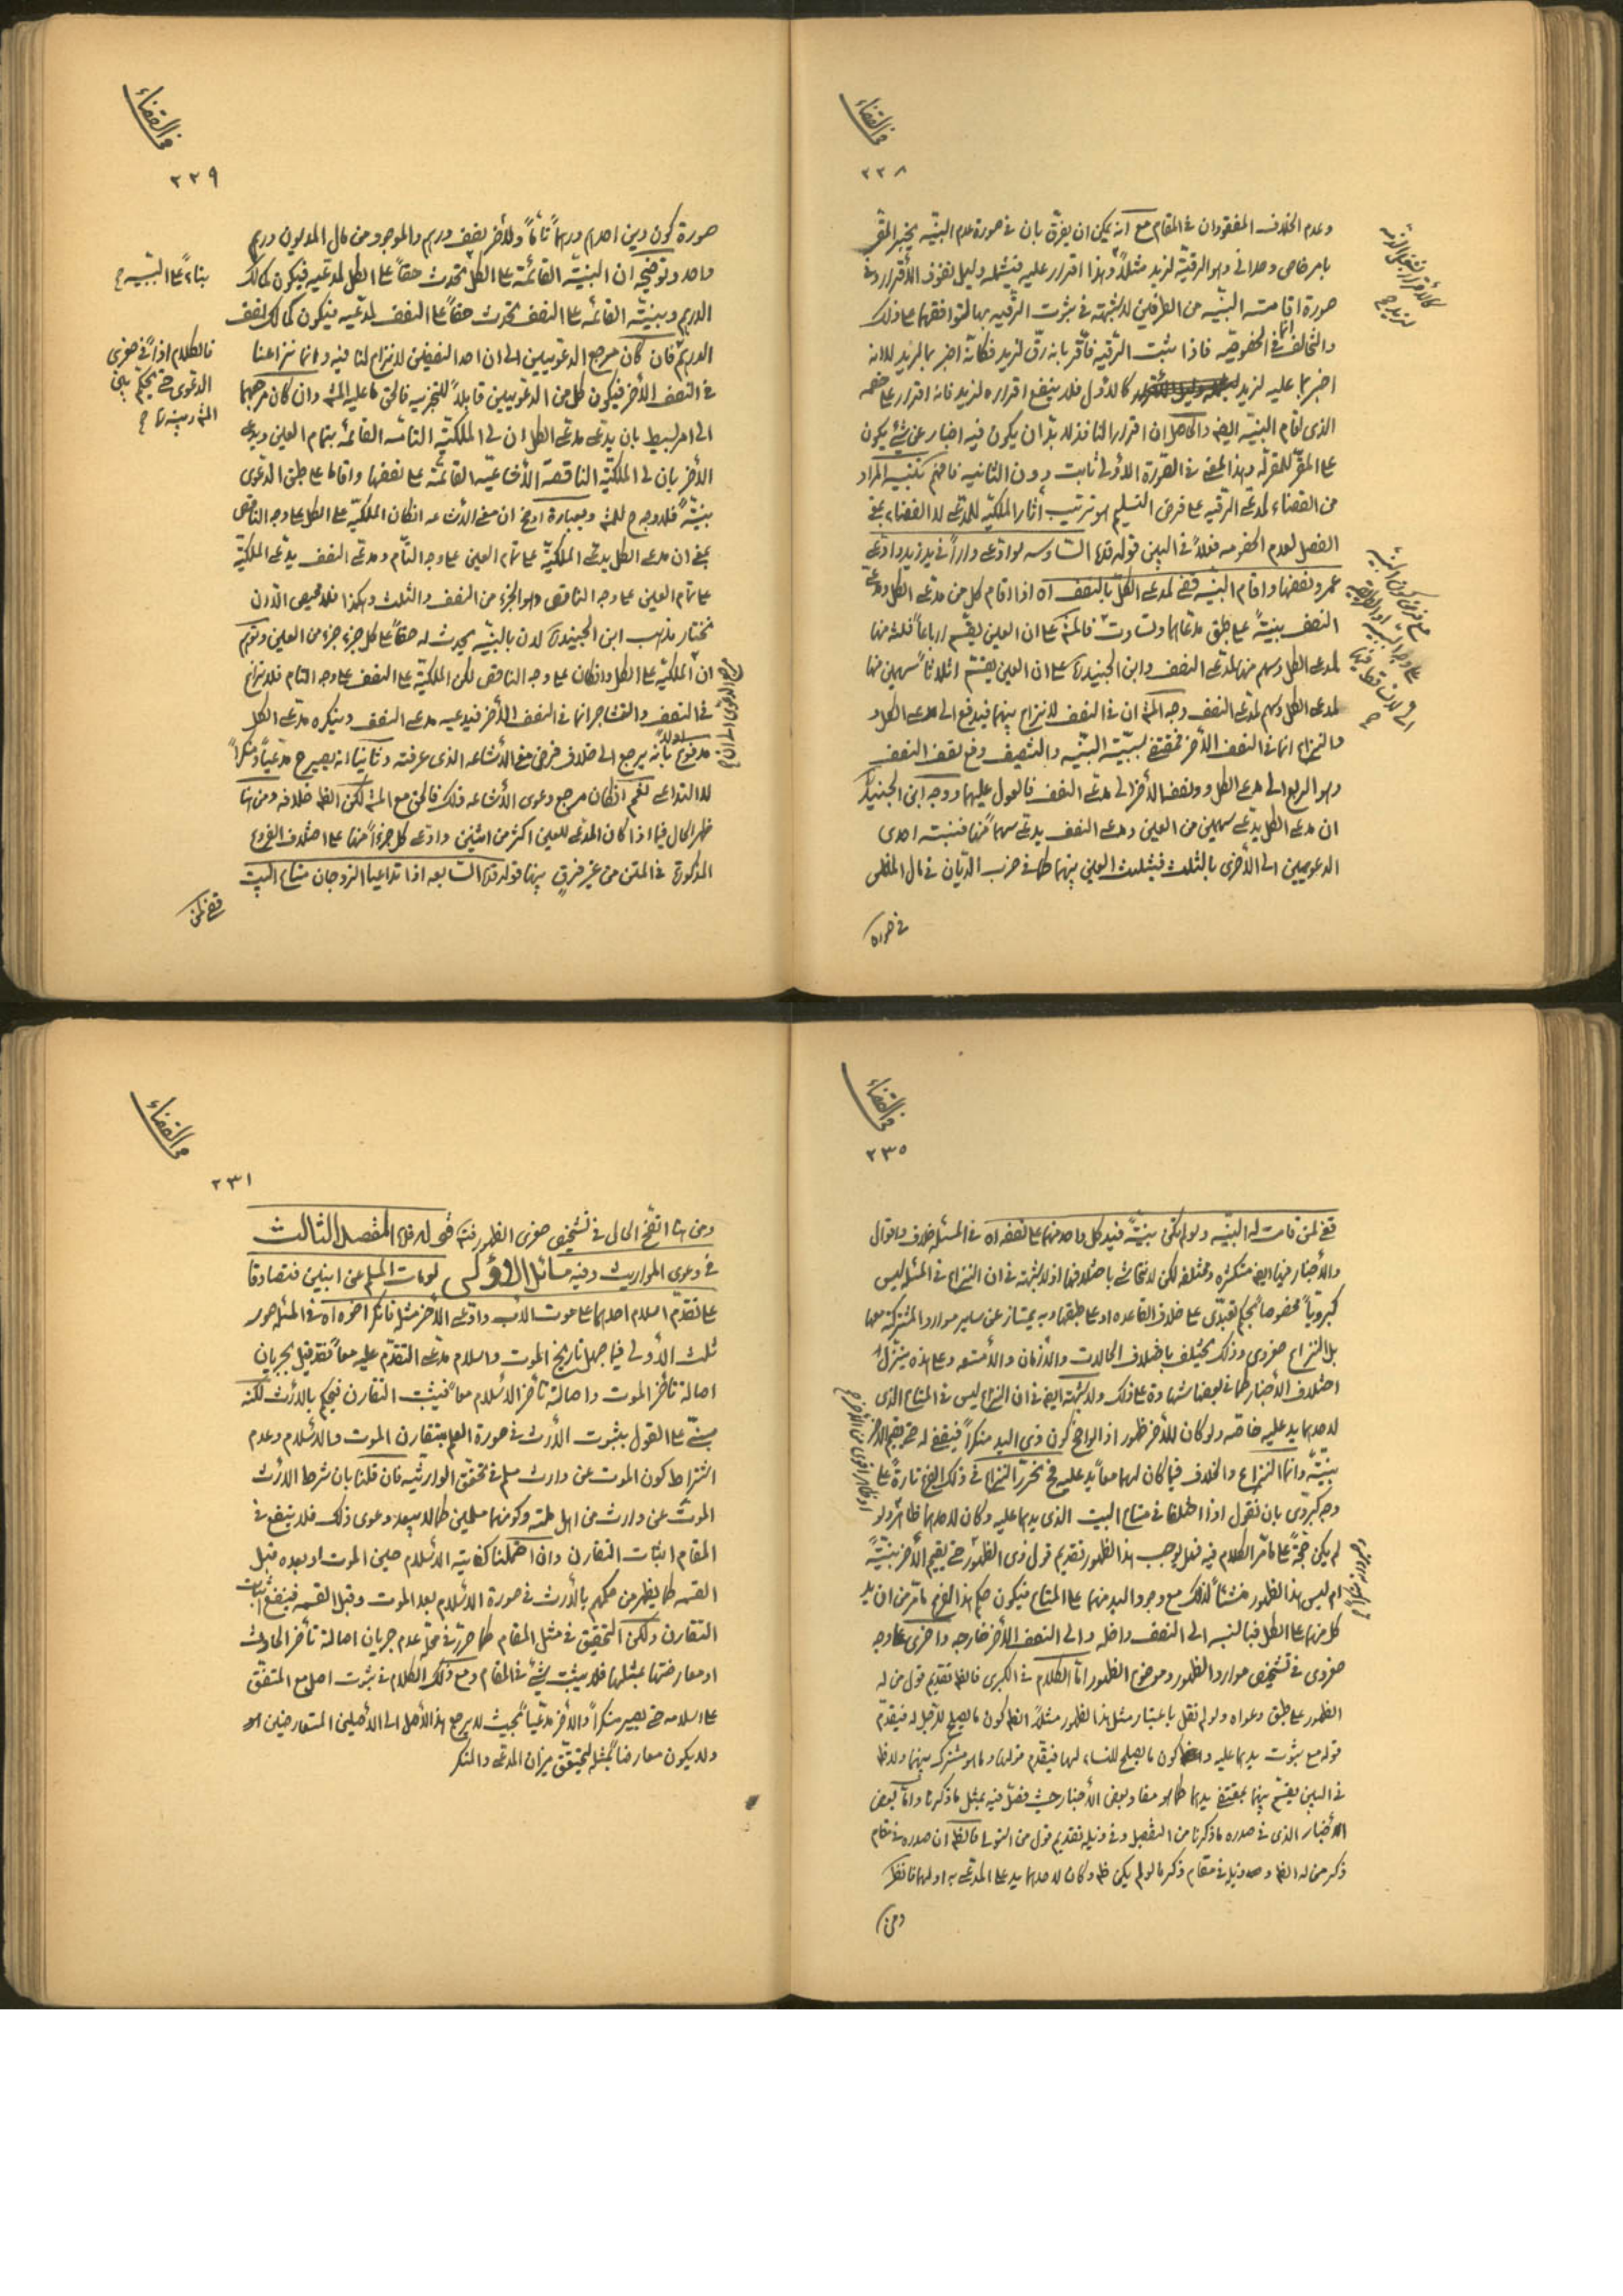 في القضاء
٢٢٨
وعدم الخلاف المفقودان في المقام مع انه يمكن ان يفرق بان في صورة عدم البينة يخبر المقر
بامر خاص وحداني وهو الرقية لزيد مثلاً وهذا اقرار عليه فيشمله دليل نفوذ الأقرار وفي
صورة اقامت البينه من الطرفين لا شبهة في ثبوت الرقيه بها لتوافقهما على ذلك
والتخالف انما في الخصوصيه فاذا ثبت الرقيه فاقر بانه رق لزيد فكانه اخبر بما لزيد لا انه
اخبر بما عليه لزيد كالاول فلا ينفع اقراره لزيد فانه اقرار على خصمه
الذى اقام البينه ايضا والحاصل ان اقرار النافذ لا بد ان يكون فيه اخبار عن شئ يكون
على المقر للمقر له وهذا المعنى في الصورة الاولى ثابت دون الثانيه فافهم تنبيه المراد
من القضاء لمدعى الرقيه على فرض التسليم هو ترتيب آثار الملكيه للمدعى لا القضاء بمعنى
الفصل لعدم الخصومه فعلاً في البين قوله قده السادسه لو ادعى داراً في يد زيد وادعى
عمرو نصفها واقام البينه قضى لمدعى الكل بالنصف اه اذا اقام كل من مدعى الكل ومدعى
النصف بينةً على طبق مدعاهما وتساوت فالمش على ان العين يقسم ارباعاً فثلثه منها
لمدعى الكل وسهم منها لمدعى النصف وابن الجنيد ره على ان العين يقسم اثلاثاً سهمين منها
لمدعى الكل وسهم لمدعى النصف وجه المش ان في النصف لا نزاع بينهما فيدفع الى مدعى الكل و
والنزاع انما في النصف الأخر فمقتضى بينة البينه والتنصيف دفع نصف النصف
وهو الربع الى مدعى الكل ونصفه الأخر الى مدعى النصف فالعول عليهما ووجه ابن الجنيد ره
ان مدعى الكل يدعى سهمين من العين ومدعى النصف يدعى سهماً منها فنسبته احدى
الدعويين الى الأخرى بالثلث فيثلث العين بينهما كما في ضرب الديان في مال المفلس
في صورة
في القضاء
٢٢٩
صورة كون دين احدهم درهماً تاماً وللأخر نصف درهم والموجود من مال المديون درهم
واحد وتوضيحه ان البينة القائمة على الكل تحدث حقاً على الكل لمدعيه فيكون كمالك
الدرهم وبينته القائمه على النصف تحدث حقاً على النصف لمدعيه فيكون كمالك نصف
الدرهم فان كان مرجع الدعويين الى ان احد النصفين لا نزاع لنا فيه وانما نزاعنا
في النصف الأخر فيكون كل من الدعويين قابلاً للتجزيه فالحق ما عليه المش وان كان مرجعهما
الى امر بسيط بان يدعى مدعى الكل ان لى الملكية التامه القائمه بتمام العين ويدعى
الأخر بان لى الملكية الناقصه الأشاعيه القائمة على نصفها واقاما على طبق الدعوى
بينةً فلا وجه ح للمش وبعبارة اوضح ان معنى الاشاعه ان كان الملكية على الكل على وجه الناقص
بمعنى ان مدعى الكل يدعى الملكية على تمام العين على وجه التام ومدعى النصف يدعى الملكية
على تمام العين على وجه الناقص وهو الجزء من النصف والثلث وهكذا فلا محيص الا ان
نختار مذهب ابن الجنيد ره لان بالبينه يحدث له حقاً على كل جزء جزء من العين وتوهم
ان الملكية على الكل وان كان على وجه الناقص لكن الملكية على النصف على وجه التام فلا نزاع
في النصف والتشاجر انما في النصف الأخر فيدعيه مدعى النصف وينكره مدعى الكل
مدفوع اولا بأنه يرجع الى خلاف فرض معنى الأشاعه الذى عرفته وثانيا انه يصير ح مدعياً ومنكراً
لا التداعى نعم ان كان مرجع دعوى الأشاعه ذلك فالحق مع المش لكن الظ خلافه ومن هنا
ظهر الحال فيما اذا كان المدعى للعين اكثر من اثنين وادعى كل جزءاً منها على اختلاف الفروع
المذكورة في المتن من غير فرق بينها قوله قده السابعه اذا تداعيا الزوجان متاع البيت
قضى لمن
بناءً على البينه ح
فالكلام اذاً في صغرى
الدعوى حتى يحكم بين
في القضاء
٢٣٠
قضى لمن قامت له البينه ولو لم يكن بينةً فيد كل واحد منهما على نصفه اه في المسئله خلاف واقوال
والأخبار فيها ايضا متكثره ومختلفه لكن لا نتحاشى باختلافها اذ لا شبهة في ان النزاع في المسئله ليس
كبروياً مخصوصاً بحكم تعبدى على خلاف القاعده او على طبقها وبه يمتاز عن ساير موارد المشتركة معها
بل النزاع صغروى وذلك يختلف باختلاف الحالات والأزمان والأمتعه وعلى هذه ينزل
اختلاف الأخبار كما في بعضها شهادة على ذلك ولا شبهة ايضا في ان النزاع ليس في المتاع الذى
لاحدهما يد عليه خاصه ولو كان للأخر ظهور اذ الواضح كون ذى اليد منكراً فيقضى له حتى يقيم الأخر
بينةً وانما النزاع والخلاف فيما كان لهما معاً يد عليه فح نحرر النزاع في ذلك الفرض تارةً على
وجه كبروى بان نقول اذا اختلفا في متاع البيت الذى يدهما عليه وكان لاحدهما ظاهر ولو
لم يكن حجةً على ما مر الكلام فيه فهل يوجب هذا الظهور تقديم قول ذى الظهور حتى يقيم الأخر بينةً
ام ليس هذا الظهور منشئاً لذلك مع وجود اليد منهما على المتاع فيكون حكم هذا الفرض ما مر من ان يد
كل منهما على الكل فبالنسبه الى النصف داخله والى النصف الأخر خارجه واخرى على وجه
صغروى في تشخيص موارد الظهور وموضع الظهور اما الكلام في الكبرى فالظ تقديم قول من له
الظهور على طبق دعواه ولو لم نقل باعتبار مثل هذا الظهور مثلاً الظ كون ما يصلح للرجل له فيقدم
قوله مع ثبوت يدهما عليه وكون ما يصلح للنساء لها فيقدم قولها وما هو مشترك بينهما ولا ظ
في البين يقسم بينهما بمقتضى يدهما كما هو مفاد بعض الأخبار حيث فصل فيه بمثل ما ذكرنا واما بعض
الأخبار الذى في صدره ما ذكرنا من التفصيل وفي ذيله تقديم قول من استولى فالظ ان صدره في مقام
ذكر من له الظ وذيله في مقام ذكر ما لو لم يكن ظ وكان لاحدهما يد على المدعى به او لهما فانظر
ومن
في القضاء
٢٣١
ومن هنا اتضح الحال في تشخيص صغرى الظهور فتد قوله قده المقصد الثالث
في دعوى المواريث وفيه مسائل الاولى لو مات المسلم عن ابنين فتصادقا
على تقدم اسلام احدهما على موت الاب وادعى الأخر مثله فانكر اخوه اه في المسئله صور
ثلث الأولى فيما جهل تاريخ الموت واسلام مدعى التقدم عليه معاً فقد قيل بجريان
اصالة تأخر الموت واصالة تأخر الاسلام معاً فيثبت التقارن فيحكم بالارث لكنه
مبنى على القول بثبوت الأرث في صورة العلم بتقارن الموت والاسلام وعدم
اشتراط كون الموت عن وارث مسلم في تحقق الوارثيه فان قلنا بان شرط الارث
الموت عن وارث من اهل ملته وكونهما مسلمين كما لا يبعد دعوى ذلك فلا ينفع في
المقام اثبات التقارن وان احتملنا كفاية الاسلام حين الموت او بعده قبل
القسمه كما يظهر من حكمهم بالأرث في صورة الاسلام بعد الموت وقبل القسمه فينفع اثبات
التقارن ولكن التحقيق في مثل المقام كما حرر في محله عدم جريان اصالة تأخر الحادث
او معارضتها بمثلها فلا يثبت شئ في المقام ومع ذلك الكلام في ثبوت اصل مع المتفق
على اسلامه حتى يصير منكراً والأخر مدعياً بحيث لا يرجع هذا الأصل الى الأصلين المتعارضين
ولا يكون معارضاً بمثله ليتحقق ميزان المدعى والمنكر